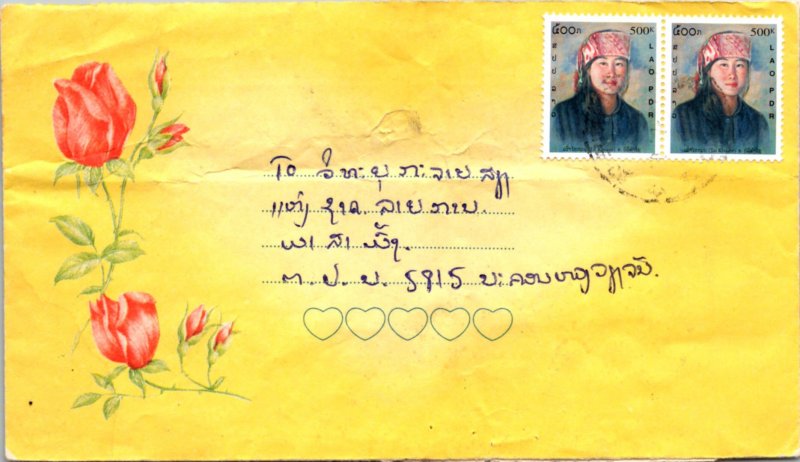 ໕໐໐ກ 500K
ສປປ ລາວ
LAO PDR
໕໐໐ກ 500K
ສປປ ລາວ
LAO PDR
To ວິທະຍຸ ກະຈາຍ ສຽງ
ແຫ່ງ ຊາດ ລາຍ ການ
ພາ ສາ ມົ້ງ.
ຕ. ປ. ນ. 5915 ນະຄອນຫຼວງວຽງຈັນ.